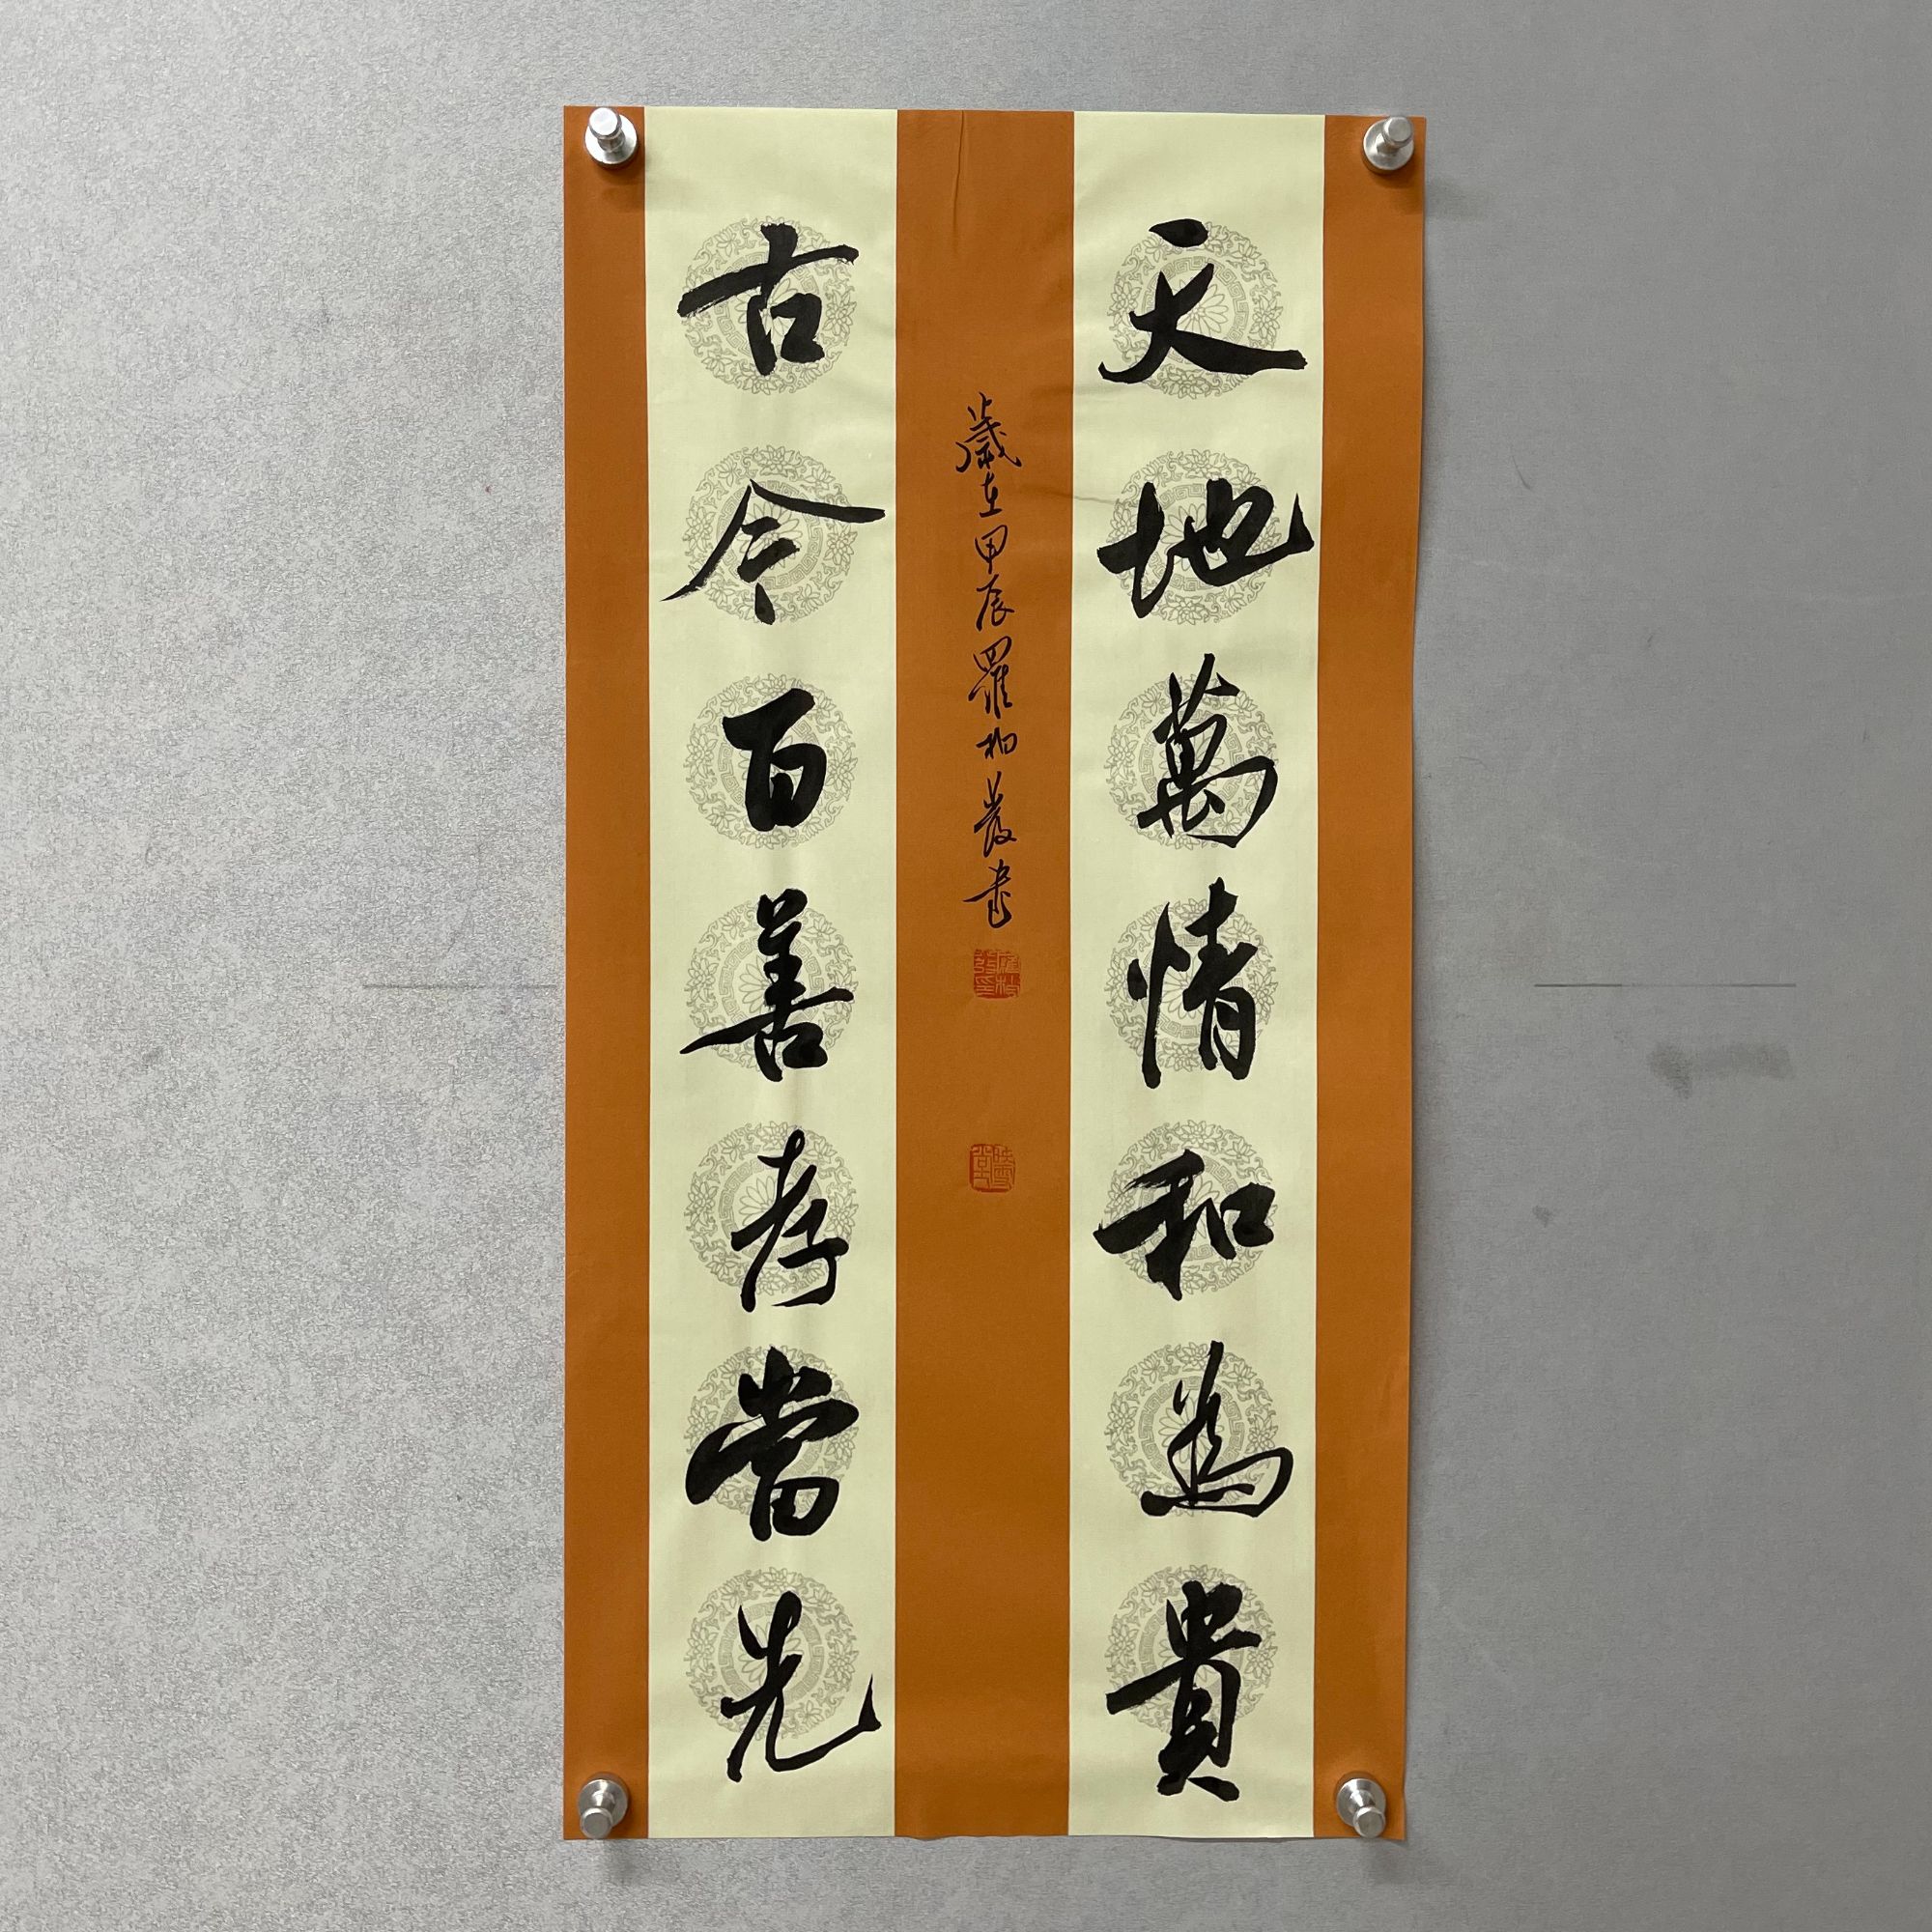 天地萬情和為貴
古今百善孝當先
歲在甲辰羅柏發書